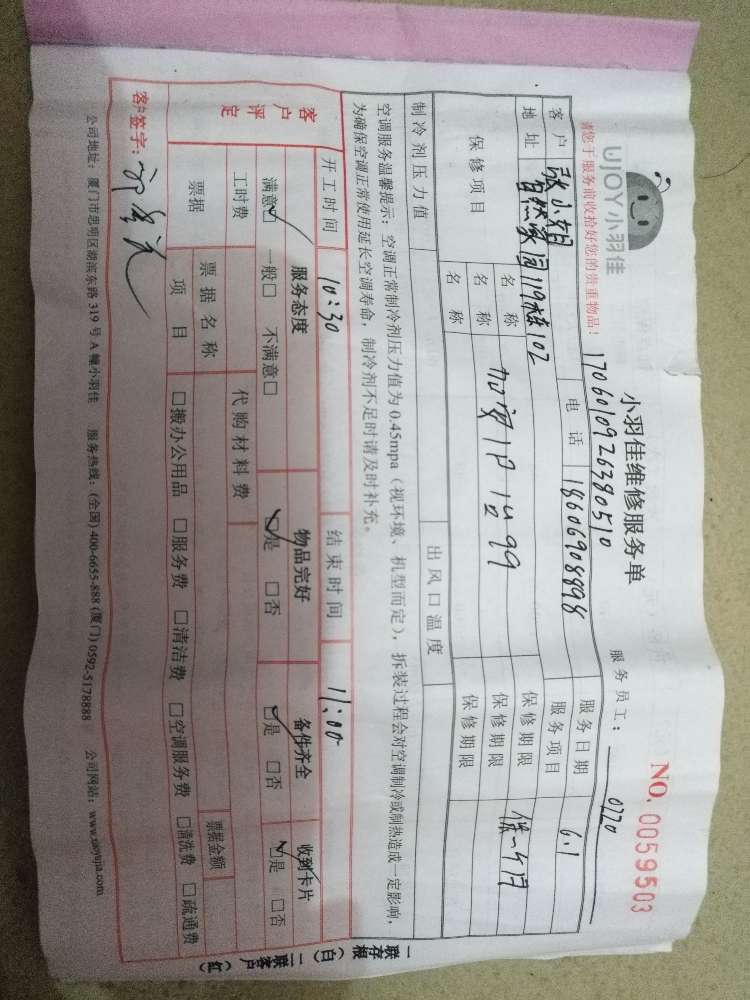 UJOY小羽佳
小羽佳维修服务单
NO. 0059503
请您于服务前收拾好您的贵重物品！
1706010926380510
服务员工：
0720
客户
张小姐
电话
18606908898
服务日期
6.1
地址
自然家园119栋102
服务项目
保修项目
名称
保修期限
名称
加氟1P 1台 99
保修期限
保一个月
名称
保修期限
制冷剂压力值
出风口温度
空调服务温馨提示：空调正常制冷剂压力值为 0.45mpa（视环境、机型而定），拆装过程会对空调制冷或制热造成一定影响，
为确保空调正常使用延长空调寿命，制冷剂不足时请及时补充。
开工时间
10:30
结束时间
11:00
客户评定
服务态度
物品完好
备件齐全
收到卡片
满意☑ 一般□ 不满意□
☑是 □否
☑是 □否
☑是 □否
工时费
代购材料费
票据
票据名称
票据金额
项目
□搬办公用品 □服务费 □清洁费 □空调服务费 □清洗费 □疏通费
客户签字：
一联存根（白）二联客户（红）
公司地址：厦门市思明区湖滨东路 319 号 A 幢小羽佳 服务热线：(全国) 400-6655-888 (厦门) 0592-5178888 公司网站：www.xiaoyujia.com